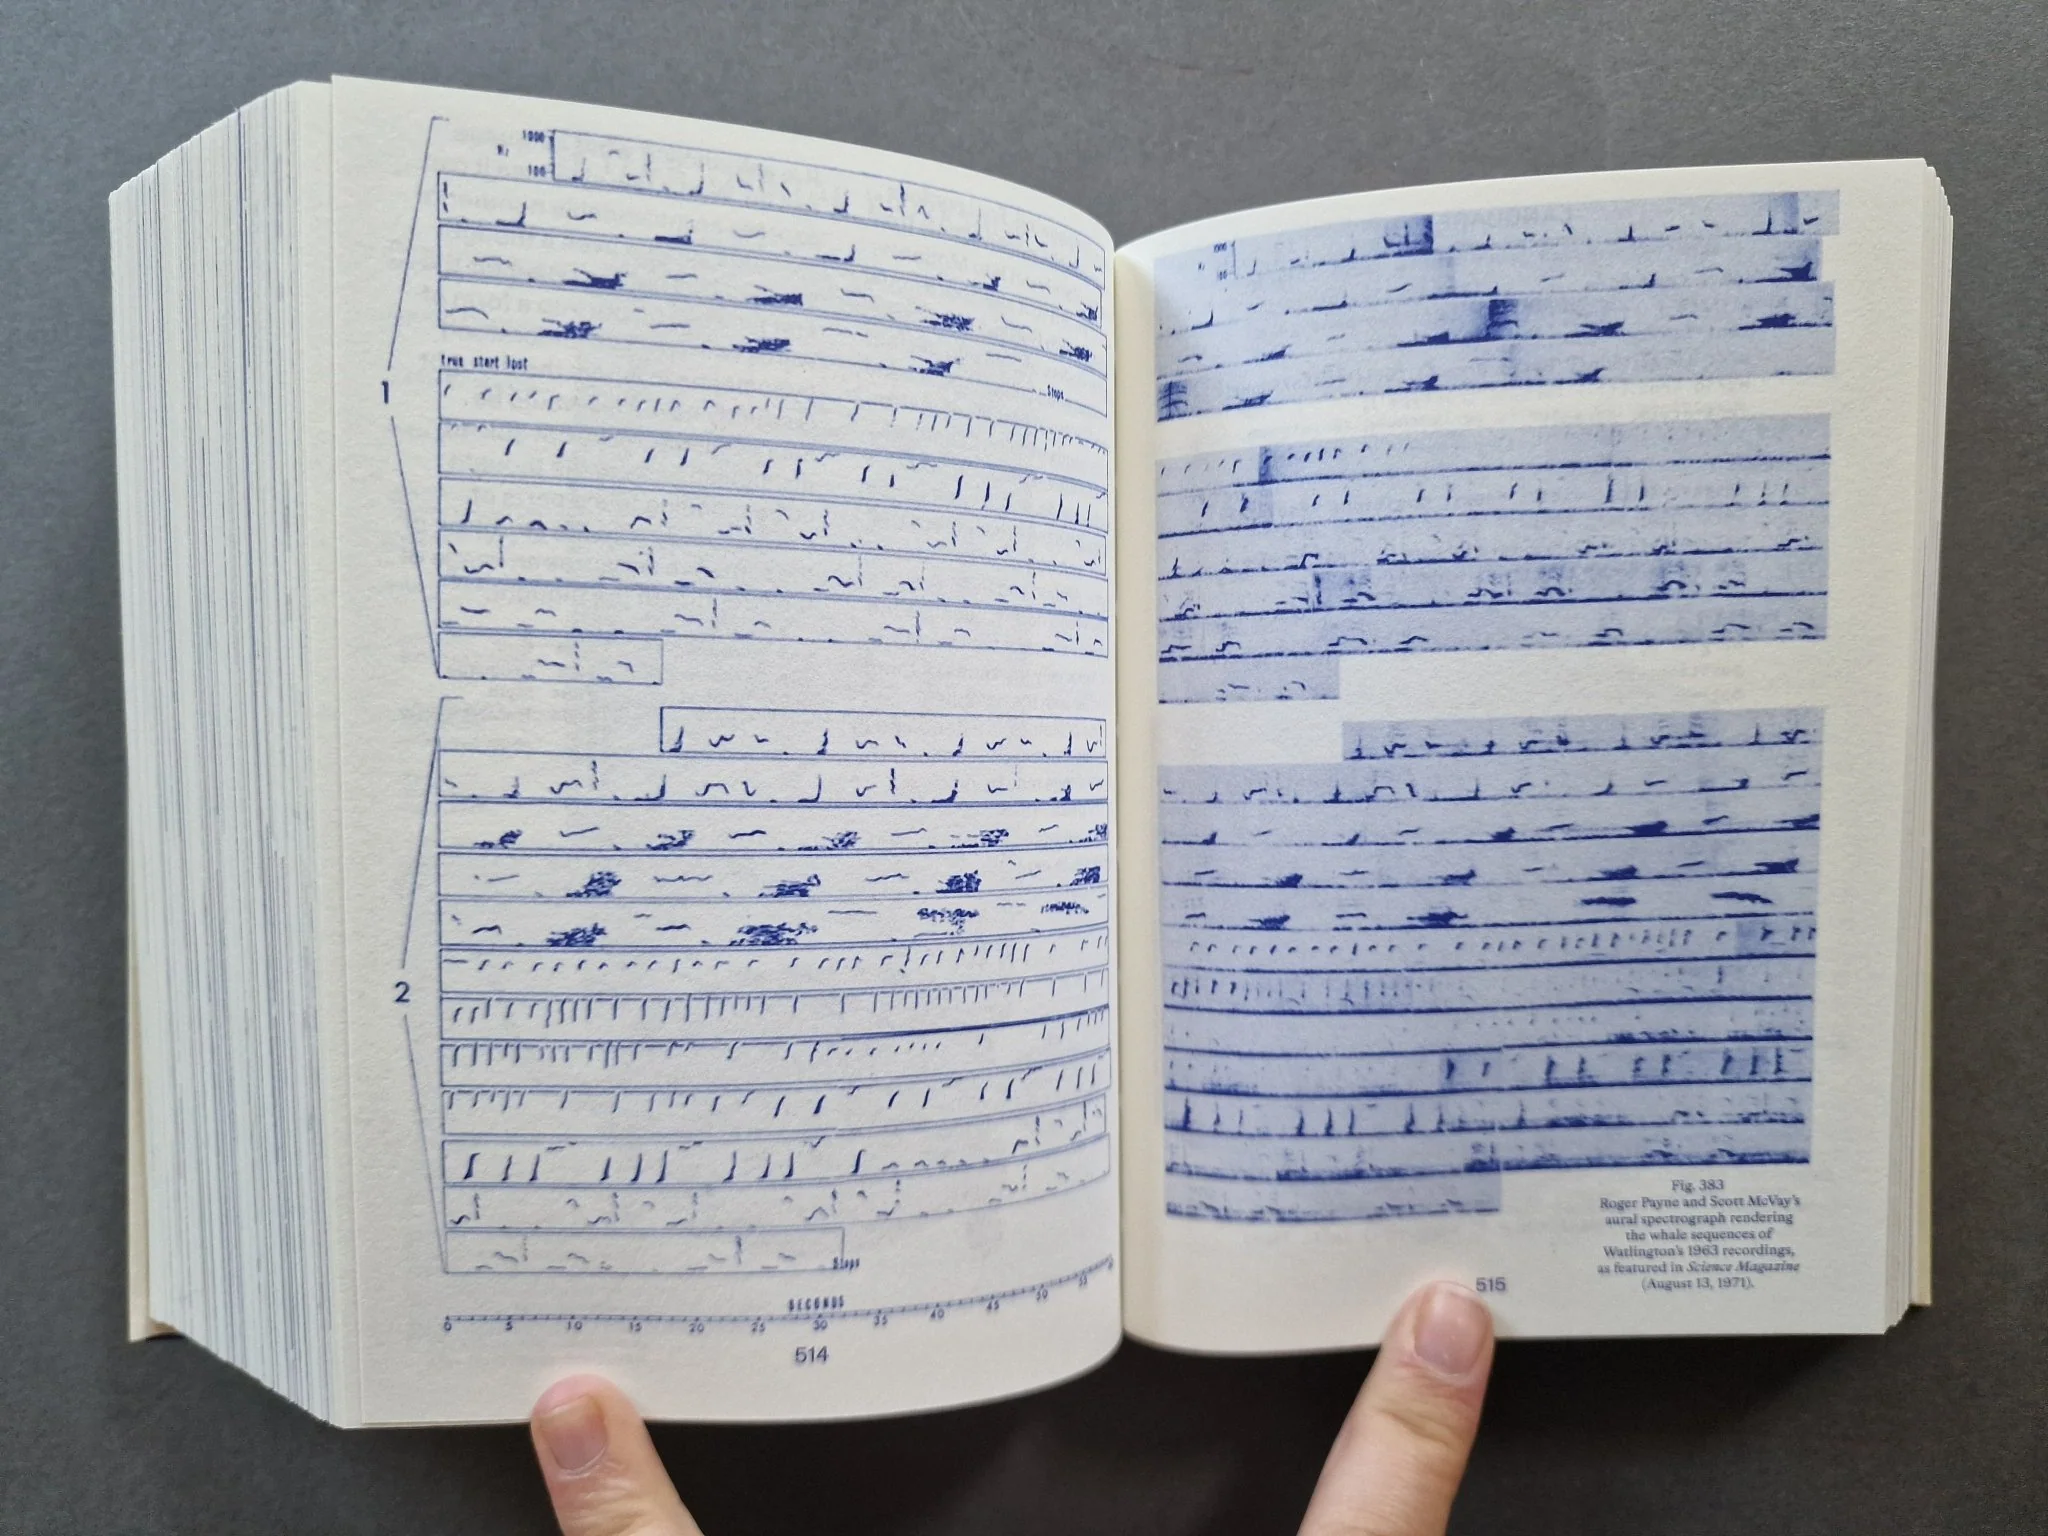 1000
Hz
100
true start lost
Stops
1
2
Stops
SECONDS
0 5 10 15 20 25 30 35 40 45 50 55
514
1000
100
Fig. 383
Roger Payne and Scott McVay's
aural spectrograph rendering
the whale sequences of
Watlington's 1963 recordings,
as featured in Science Magazine
(August 13, 1971).
515